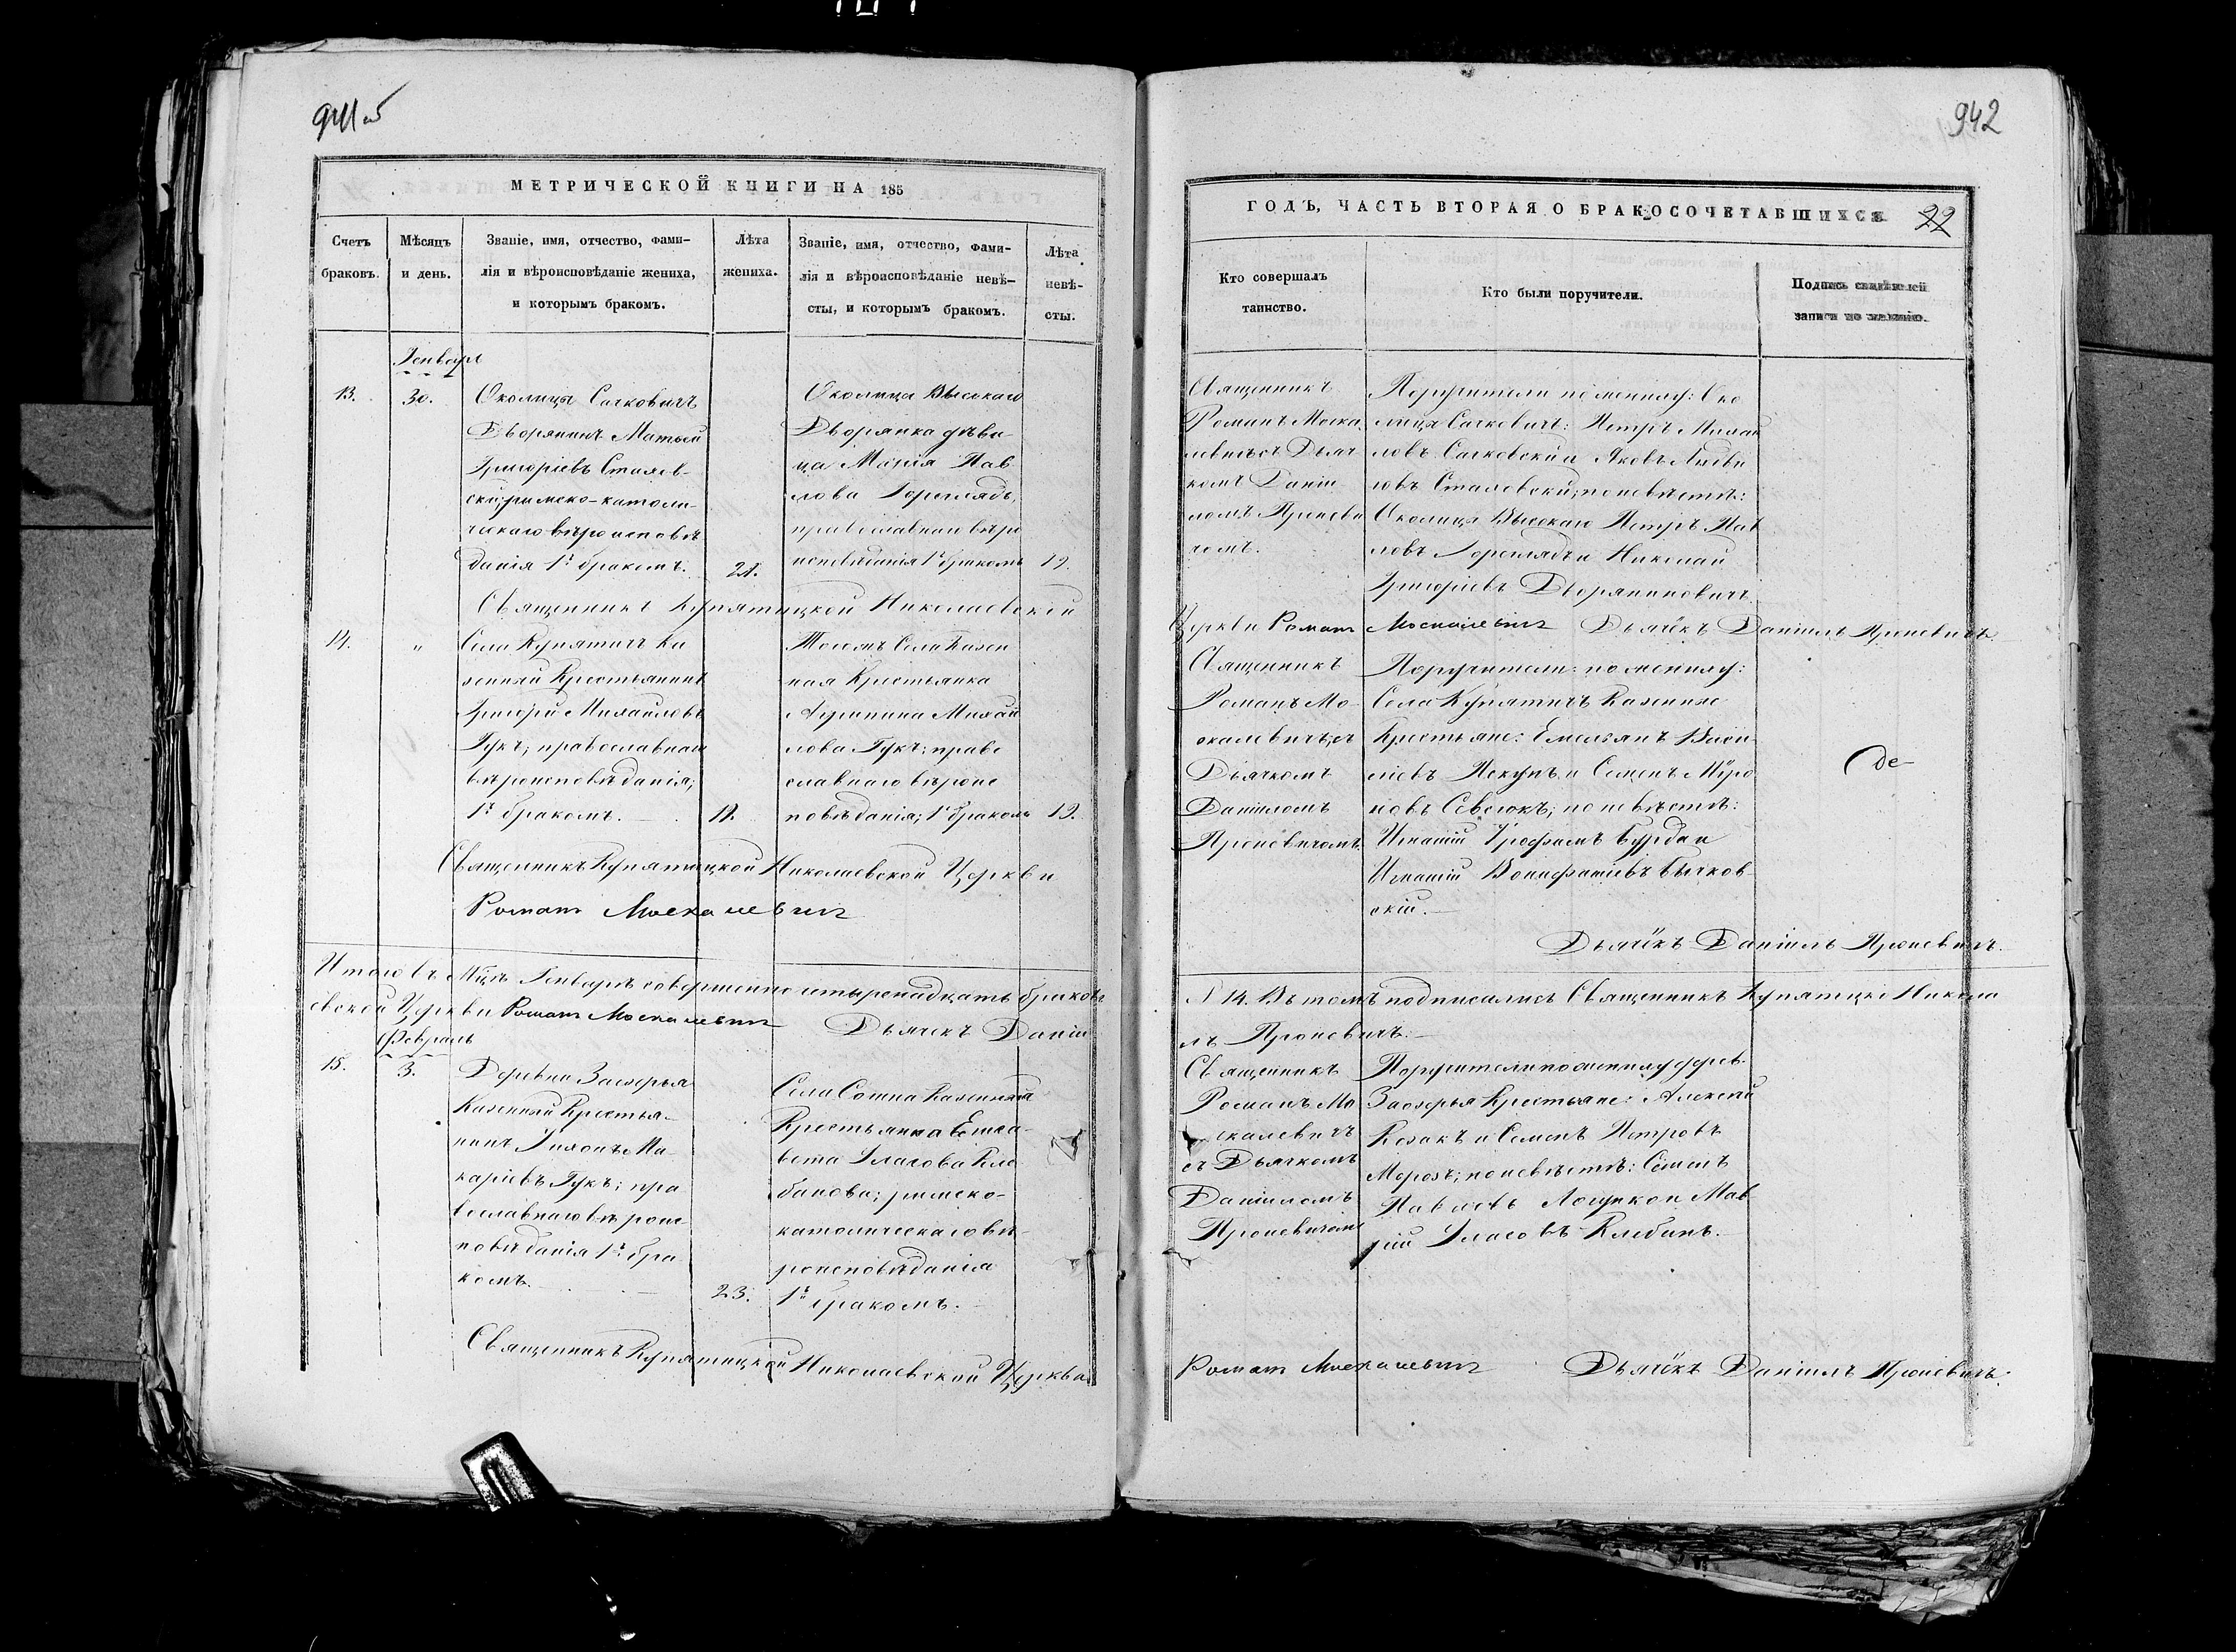 942
МЕТРИЧЕСКОЙ КНИГИ НА 185
Счетъ браковъ.
Мѣсяцъ и день.
Званіе, имя, отчество, фами-
лія и вѣроисповѣданіе жениха,
и которымъ бракомъ.
Лѣта жениха.
Званіе, имя, отчество, фами-
лія и вѣроисповѣданіе невѣ-
сты, и которымъ бракомъ.
Лѣта невѣ-
сты.
Генварь
13.
30.
Околицы Сачковичъ
Дворянинъ Матѳей
Григоріевъ Сталев-
скій; римско-католи-
ческаго вѣроисповѣ
данія 1ъ бракомъ.
21.
Околицы Высокаго
Дворянка дѣви-
ца Марія Пав
лова Гореглядъ,
православнаго вѣро
исповѣданія 1ъ бракомъ
19.
Священникъ Купятицкой Николаевской
14.
"
Села Купятичъ Ка
зенный Крестьянинъ
Григорій Михайловъ
Гукъ; православнаго
вѣроисповѣданія;
1ъ бракомъ.
Тогожъ Села Казен
ная Крестьянка
Агрипина Михай
лова Гукъ; право
славнаго вѣроис
повѣданія; 1ъ бракомъ
19.
Священникъ Купятицкой Николаевской Церкви
Романъ Москалевичъ
Итого въ Мцѣ Генварѣ совершено четыренадцать браковъ
евской Церкви Романъ Москалевичъ Дьячекъ Даніи
Февраль
15.
3.
Деревни Заозерья
Казенный Крестья-
нинъ
каріевъ Гукъ; пра
вославнаго вѣроис-
повѣданія 1ъ бра
комъ.
23.
Села Сошна Казенная
Крестьянка Елиса-
вета
банова; римско-
католическаго вѣ-
роисповѣданія
1ъ бракомъ.
Священникъ Купятицкой Николаевской Церкви
ГОДЪ, ЧАСТЬ ВТОРАЯ О БРАКОСОЧЕТАВШИХСЯ
22
Кто совершалъ
таинство.
Кто были поручители.
Подпись свидѣтелей
записи по желанію.
Священникъ
Романъ Моска
левичъ съ Дьяч
комъ Даніи
ломъ Проневи
чомъ.
Поручители по жениху: Око
лицы Сачковичъ: Петръ Михай
ловъ Сачковскій и Яковъ
Сталевскій; по невѣстѣ:
Околицы Высокаго Петръ Пав
ловъ Гореглядъ и Николай
Григоріевъ Дворяниновичъ
Церкви Романъ Москалевичъ Дьячёкъ Даніилъ Проневичъ.
Священникъ
Романъ Мо-
скалевичъ; съ
Дьячкомъ
Даніиломъ
Проневичомъ.
Поручители: по жениху:
Села Купятичъ Казенные
Крестьяне: Емельянъ Васи
ліевъ и Семенъ Миро
новъ Севслюкъ; по невѣстѣ:
Игнатій Трофимъ Бурда и
Игнатій Вонифатіевъ Бычков-
скій.
Дьячёкъ Даніилъ Проневичъ.
14. Въ томъ подписались Священникъ Купятицко Никола
лъ Проневичъ.
Священникъ
Романъ Мо
скалевичъ
съ Дьячкомъ
Даніиломъ
Проневичомъ
Поручители по жениху дерев.
Заозерья Крестьяне: Алексѣй
Козакъ и Семенъ Петровъ
Морозъ; по невѣстѣ: Семенъ
Павловъ
Романъ Москалевичъ Дьячёкъ Даніилъ Проневичъ.